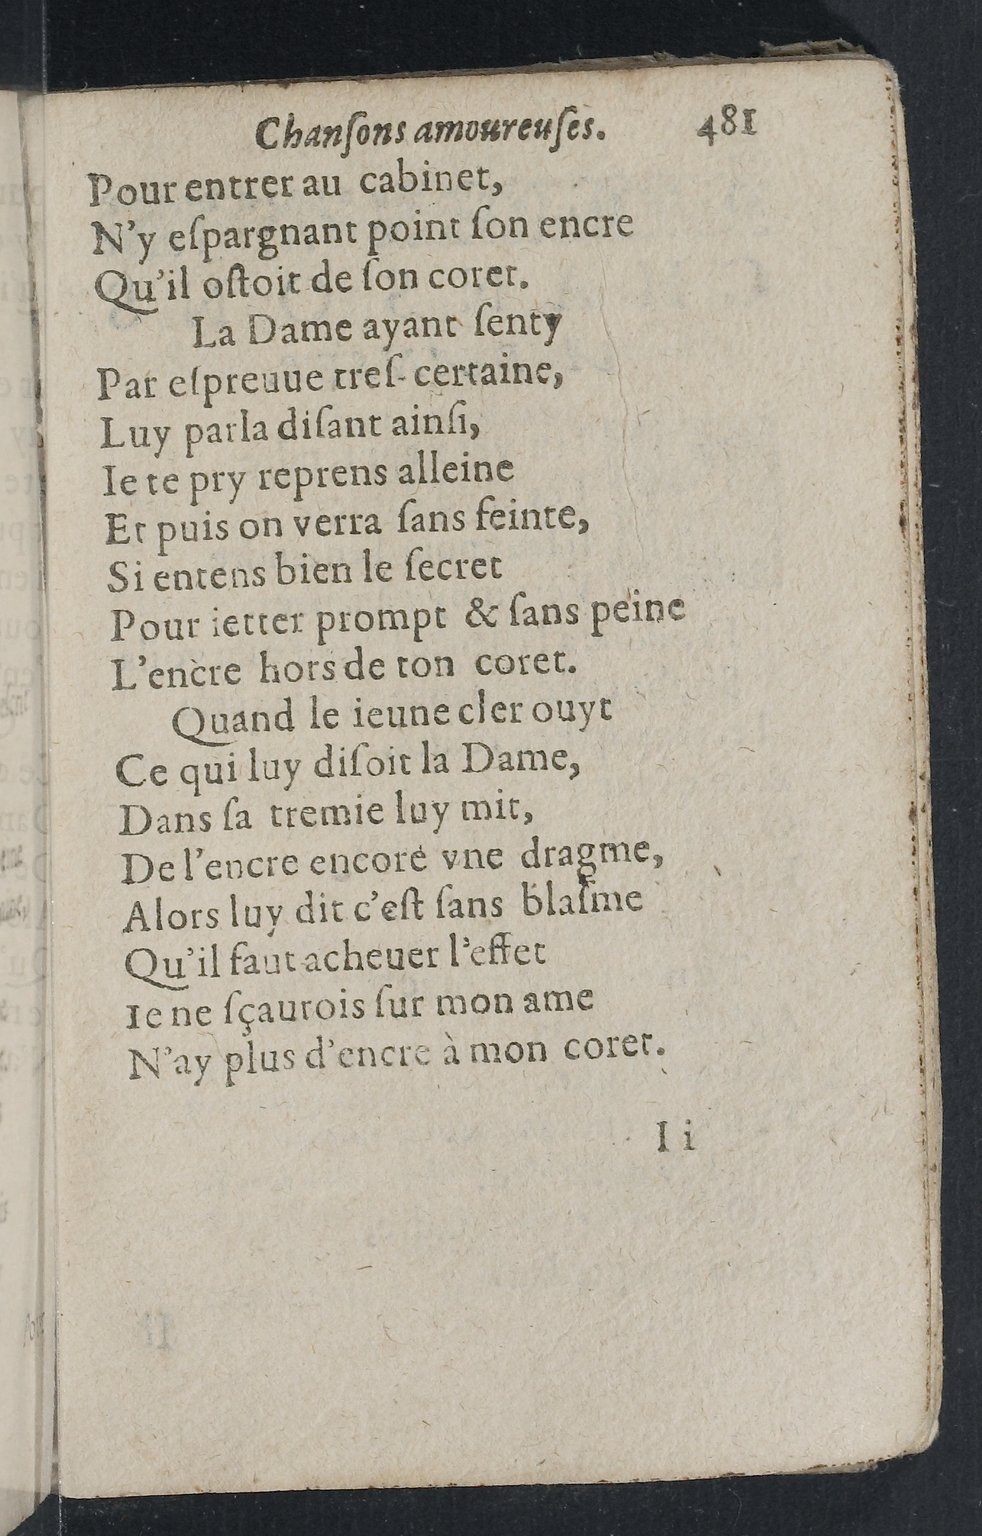 Chanſons amoureuſes. 481
Pour entrer au cabinet,
N'y eſpargnant point ſon encre
Qu'il oſtoit de ſon coret.
La Dame ayant ſenty
Par eſpreuue treſ-certaine,
Luy parla diſant ainſi,
Ie te pry reprens alleine
Et puis on verra ſans feinte,
Si entens bien le ſecret
Pour ietter prompt & ſans peine
L'encre hors de ton coret.
Quand le ieune cler ouyt
Ce qui luy diſoit la Dame,
Dans ſa tremie luy mit,
De l'encre encore vne dragme,
Alors luy dit c'eſt ſans blaſme
Qu'il faut acheuer l'effet
Ie ne ſçaurois ſur mon ame
N'ay plus d'encre à mon coret.
I i